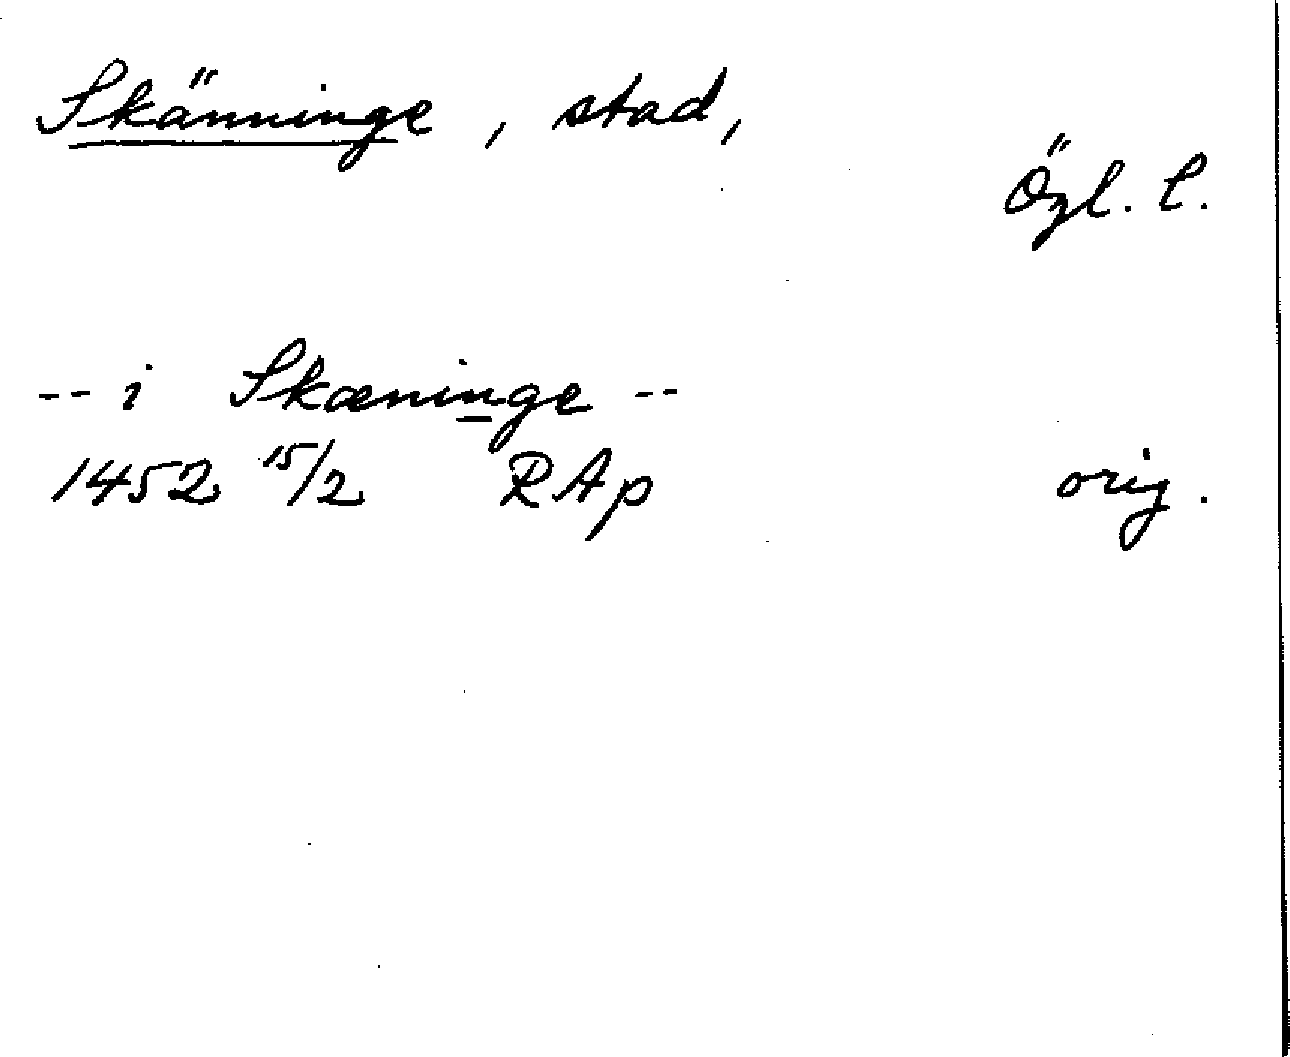 Skänninge, stad,
Ögl. l.
-- i Skæninge --
1452 15/2 RAp orig.